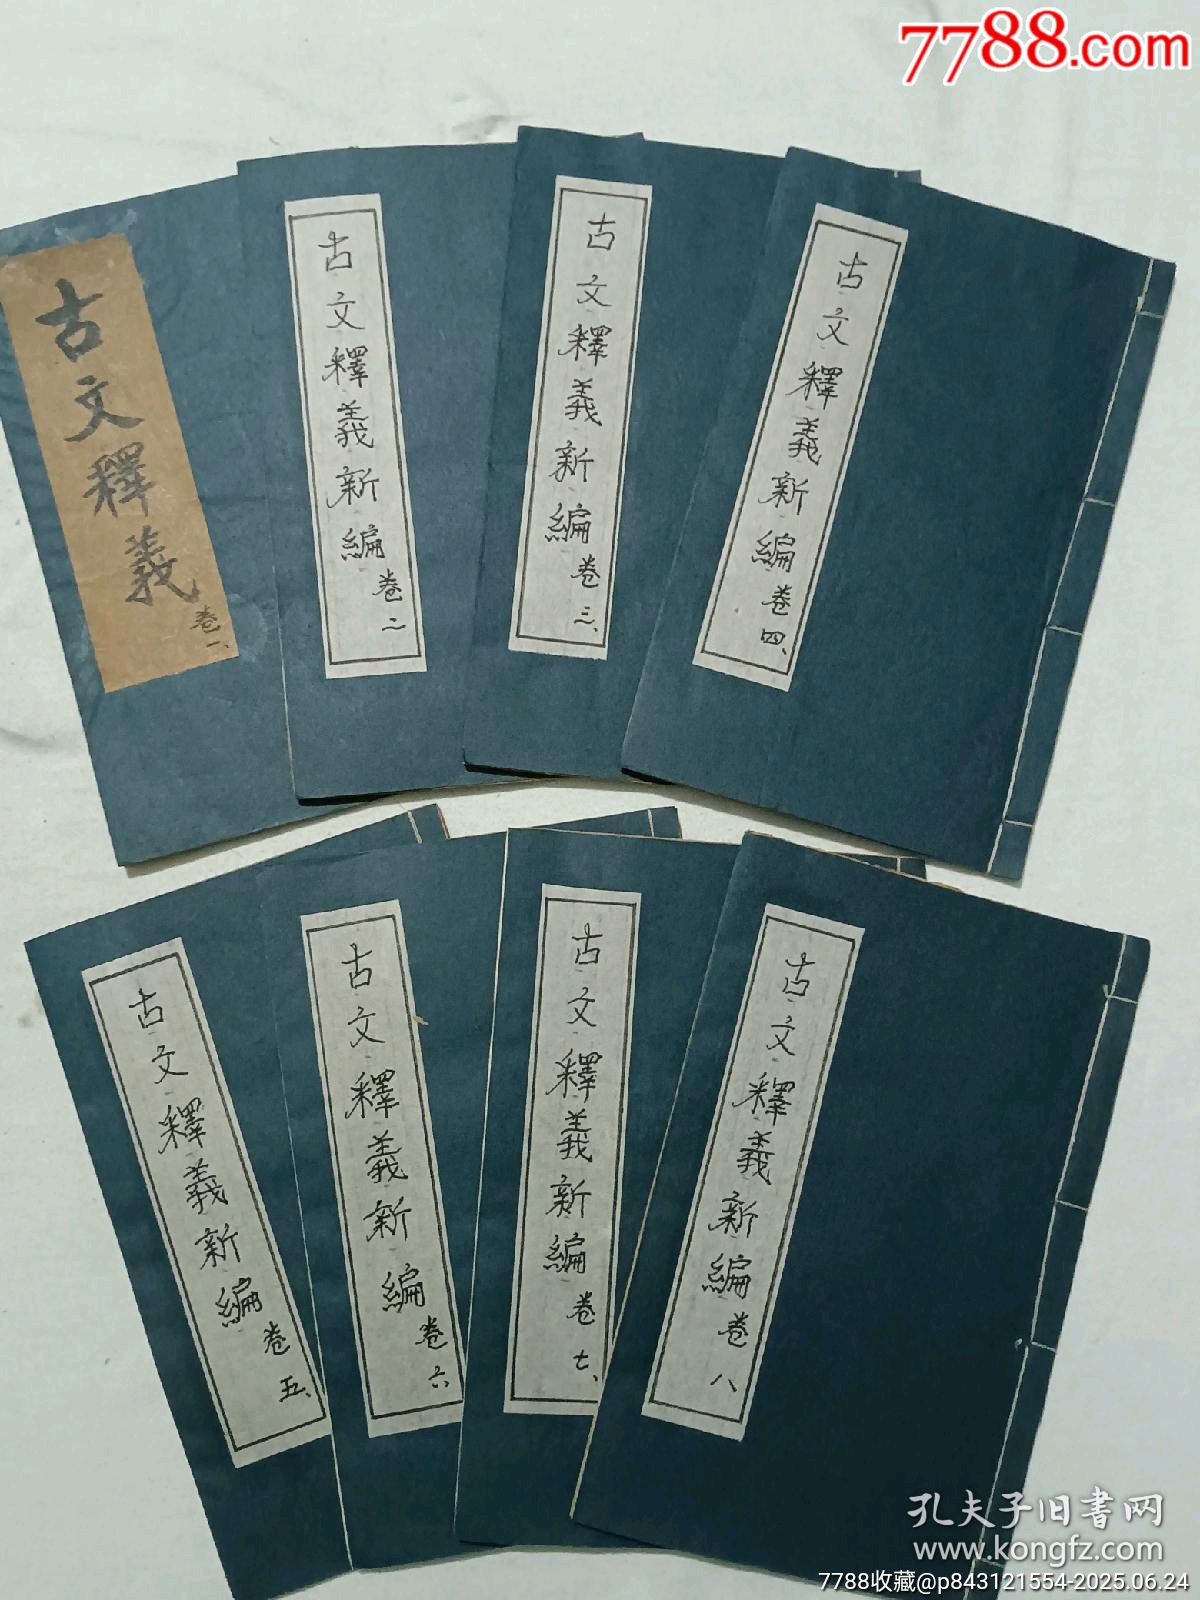 7788.com
古文釋義
卷一、
古文釋義新編
卷二
古文釋義新編
卷三、
古文釋義新編
卷四、
古文釋義新編
卷五、
古文釋義新編
卷六
古文釋義新編
卷七、
古文釋義新編
卷八
孔夫子旧書网
www.kongfz.com
7788收藏@p843121554-2025.06.24